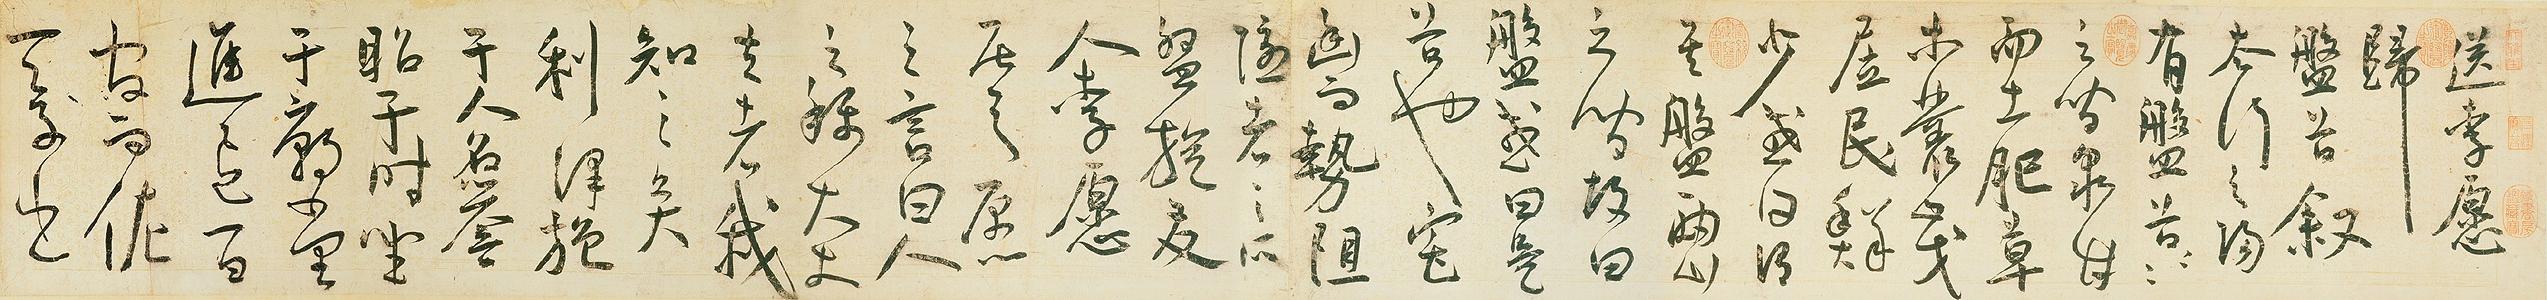 送李愿
歸
盤谷叙
太行之陽
有盤谷〻
之間泉甘
而土肥草
木叢茂
居民鮮
少或曰謂
其盤兩山
之間故曰
盤或曰是
谷也宅
幽而勢阻
隱者之所
盤旋友
人李愿
居之愿
之言曰人
之稱大丈
夫者我
知之矣
利澤施
于人名譽
昭于時坐
于廟堂
進退百
官而佐
天子出